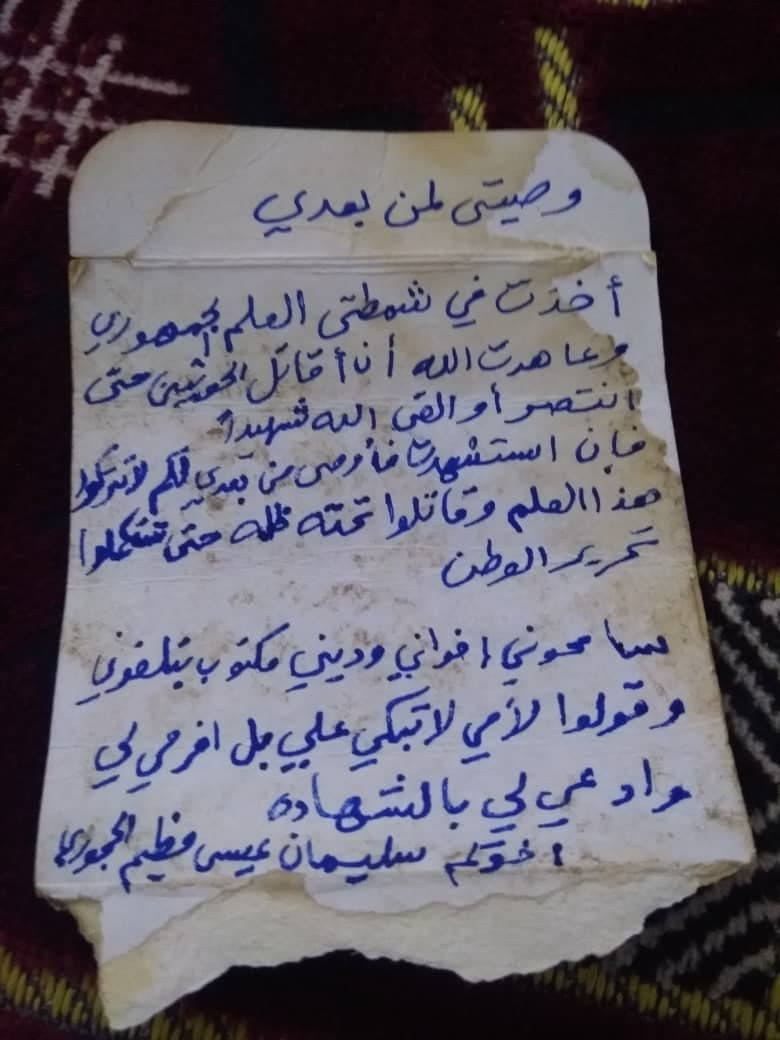 وصيتي لمن بعدي
أخذت في شمطتي العلم الجمهوري
وعاهدت الله أن أقاتل الحوثيين حتى
انتصر أو القى الله شهيداً
فإن استشهدت فأوصي من بعدي لكم لا تتركوا
هذا العلم وقاتلوا تحته ظله حتى تستكملوا
تحرير الوطن
سامحوني إخواني وديني مكتوب بتلفوني
وقولوا لأمي لا تبكي علي بل افرحي لي
وادعي لي بالشهاده
اخوكم سليمان عيسى الحجوري